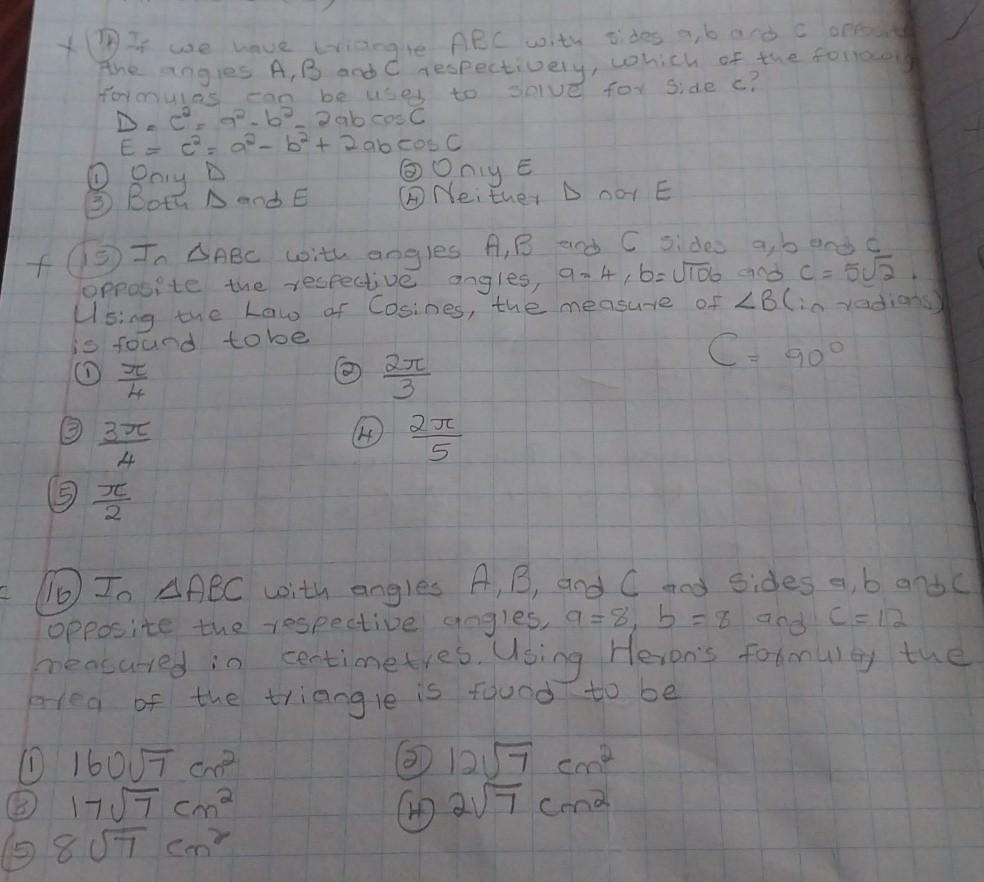 + 14 If we have triangle ABC with sides a, b and c opposite
the angles A, B and C respectively, which of the following
formulas can be used to solve for side c?
D = c² = a² - b² - 2ab cos C
E = c² = a² - b² + 2ab cos C
① Only D ② Only E
③ Both D and E ④ Neither D nor E
+ 15 In △ABC with angles A, B and C sides a, b and c
opposite the respective angles, a = 4, b = √106 and c = 5√2.
Using the Law of Cosines, the measure of ∠B (in radians)
is found to be
C = 90°
① π/4 ② 2π/3
③ 3π/4 ④ 2π/5
⑤ π/2
16 In △ABC with angles A, B, and C and sides a, b and c
opposite the respective angles, a = 8, b = 8 and c = 12
measured in centimetres. Using Heron's formula, the
area of the triangle is found to be
① 160√7 cm² ② 12√7 cm²
③ 17√7 cm² ④ 2√7 cm²
⑤ 8√7 cm²